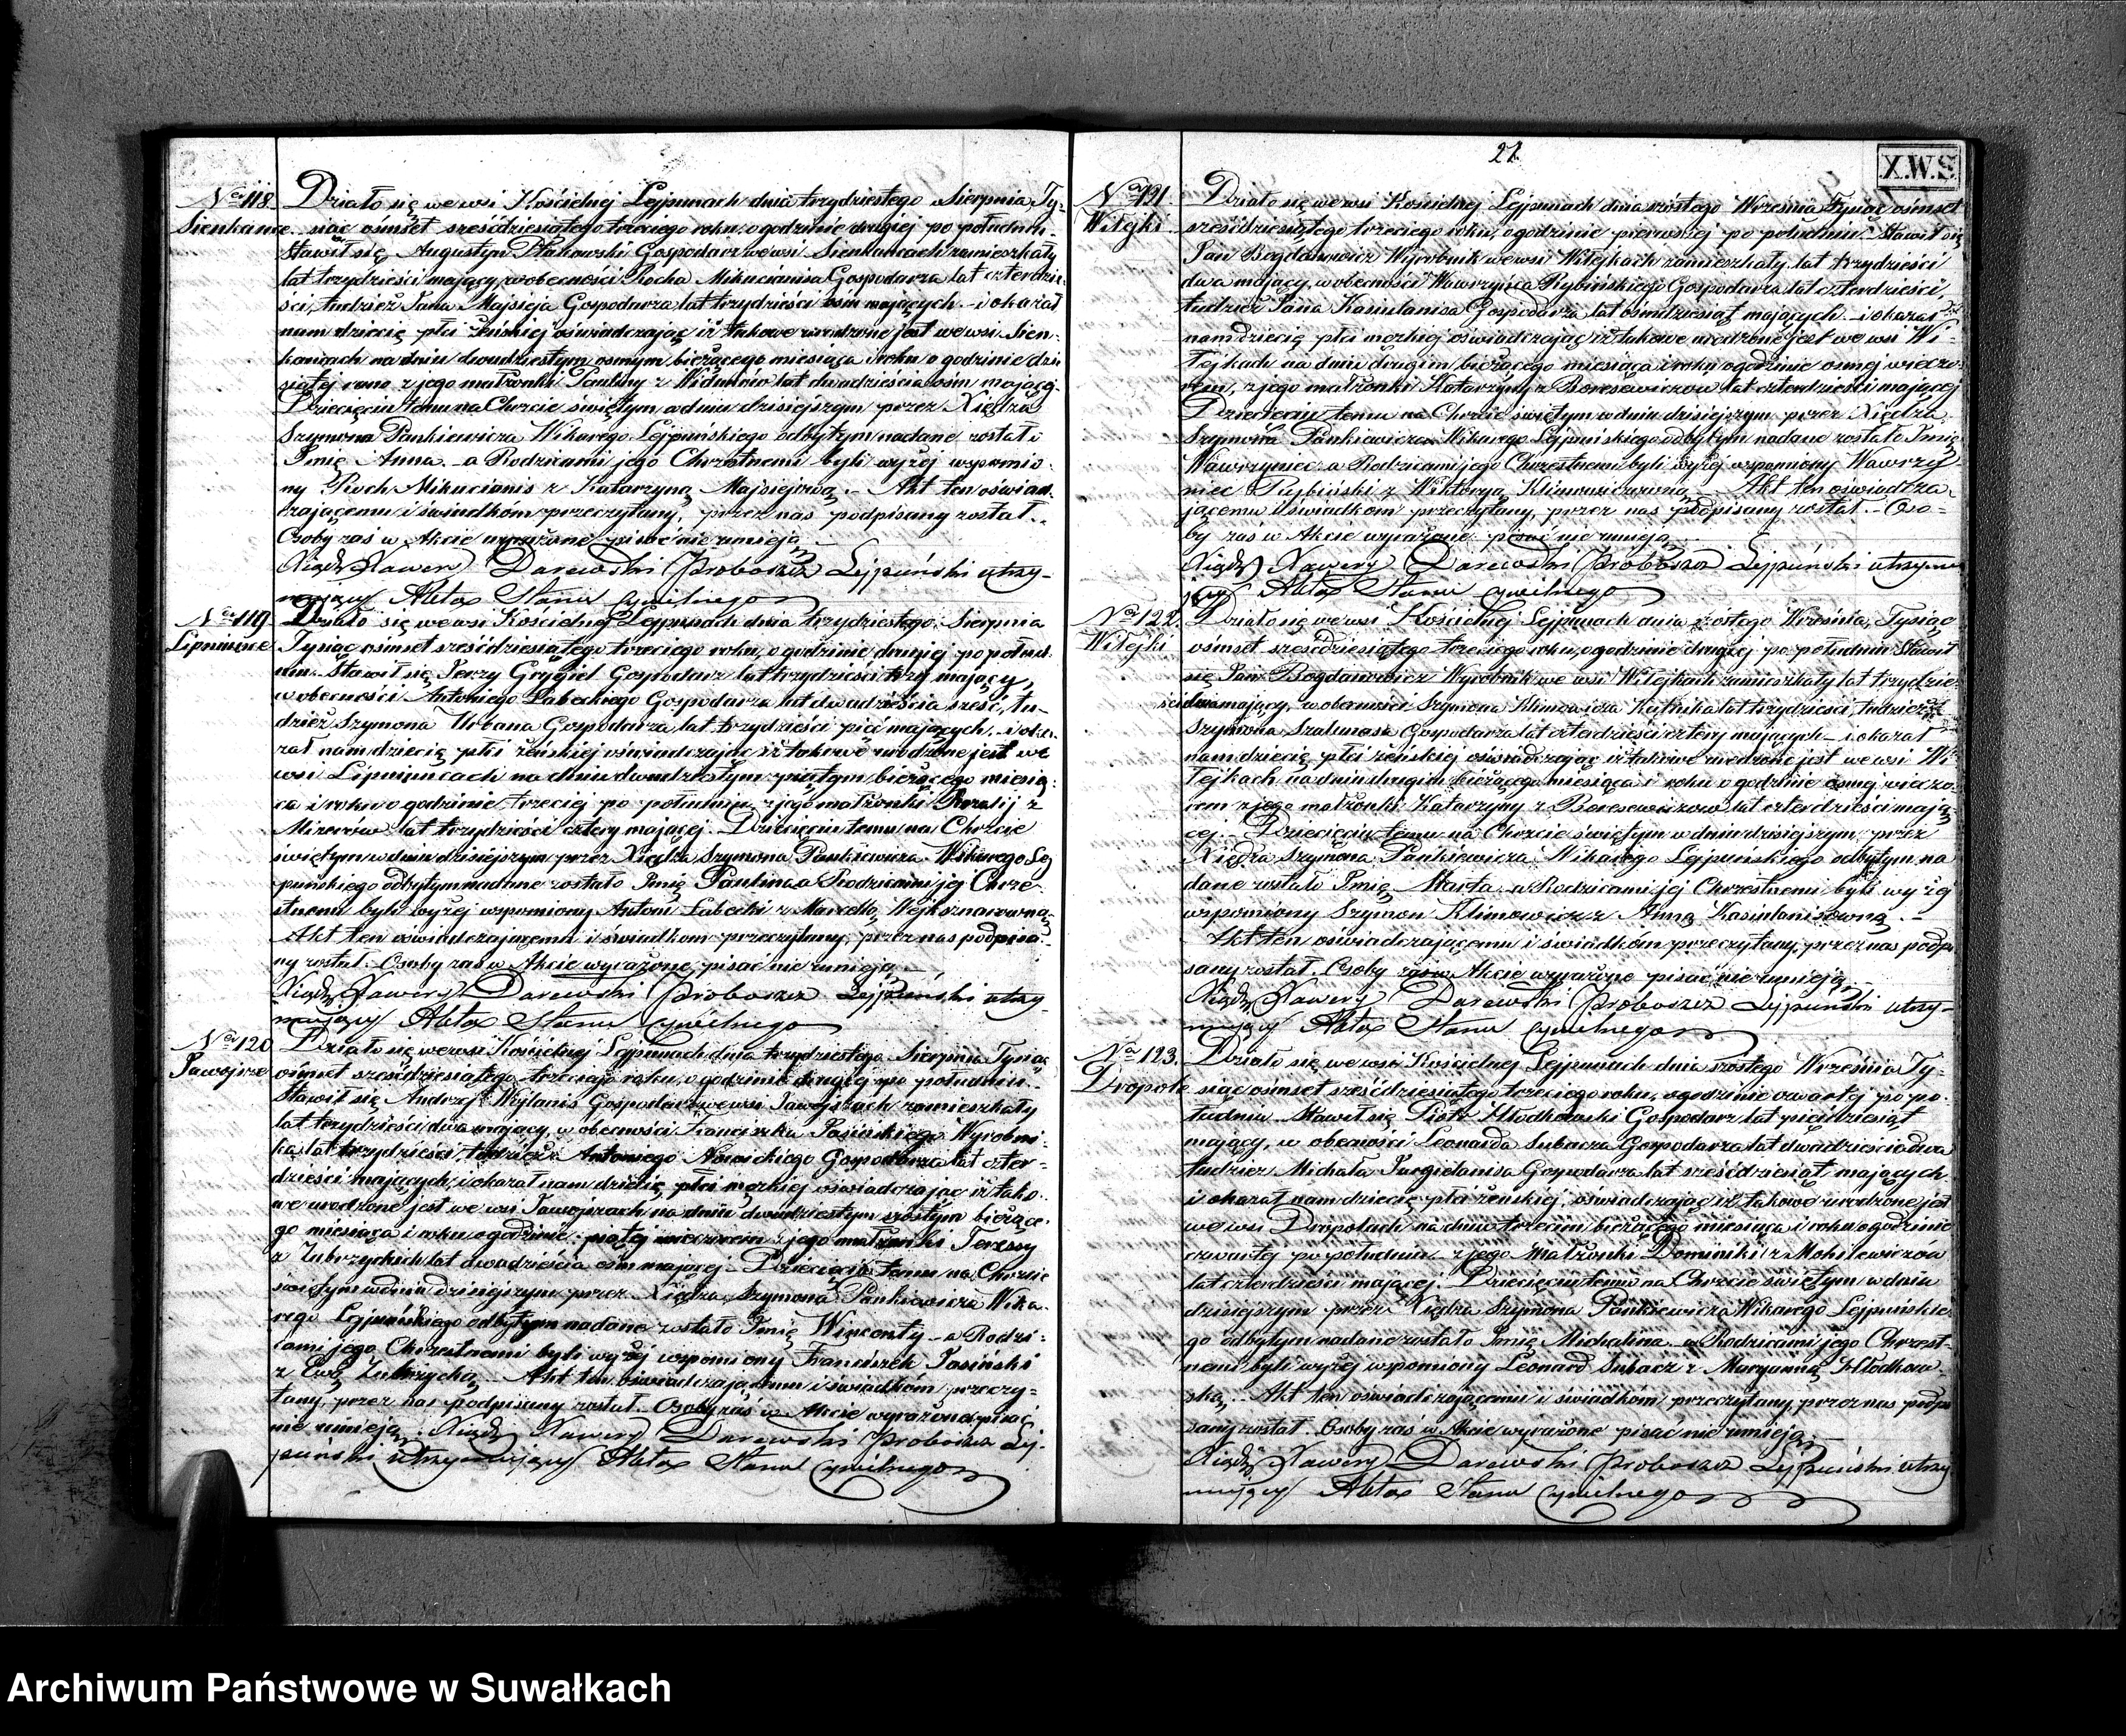 No 118.
Sienkańce
Działo się we wsi Kościelnej Lejpunach dnia trzydziestego Sierpnia Ty-
siąc ośmset sześćdziesiątego trzeciego roku, o godzinie drugiej po południu.
Stawił się Augustyn Gospodarz we wsi Sienkańcach zamieszkały
lat trzydzieści mający, w obecności Rocha Mikucianisa Gospodarza lat czterdzie-
ści, tudzież Jana Majsieja Gospodarza lat trzydzieści ośm mających. i okazał
nam dziecię płci żeńskiej oświadczając iż takowe urodzone jest we wsi Sien-
kańcach na dniu dwudziestym osmym bieżącego miesiąca i roku o godzinie dzie
siątej rano z jego małżonki Pauliny z lat dwadzieścia ośm mającej
Dziecięciu temu na Chrzcie świętym w dniu dzisiejszym przez Xiędza
Szymona Pankiewicza Wikarego Lejpuńskiego odbytym nadane zostało
Imię Anna. a Rodzicami jego Chrzestnemi byli wyżej wspomnio-
ny Roch Mikucianis z Katarzyną Majsiejową. Akt ten oświad-
czającemu i świadkom przeczytany, przez nas podpisany został.
Osoby zaś w Akcie wyrażone pisać nie umieją.
Xiądz Xawery Darewski Proboszcz Lejpuński utrzy-
mujący Akta Stanu Cywilnego
No 119
Lipniunce
Działo się we wsi Kościelnej Lejpunach dnia trzydziestego Sierpnia
Tysiąc ośmset sześćdziesiątego trzeciego roku, o godzinie drugiej po połud-
niu. Stawił się Jerzy Grygiel Gospodarz lat trzydzieści trzy mający,
w obecności Antoniego Łabeckiego Gospodarza lat dwadzieścia sześć, tu-
dzież Szymona Urbana Gospodarza lat trzydzieści pięć mających. i oka-
zał nam dziecię płci żeńskiej oświadczając iż takowe urodzone jest we
wsi Lipniuncach na dniu dwudziestym piątym bieżącego miesią-
ca i roku o godzinie trzeciej po południu z jego małżonki Rozalij z
lat trzydzieści cztery mającej. Dziecięciu temu na Chrzcie
świętym w dniu dzisiejszym przez Xiędza Szymona Pankiewicza Wikarego Lej
puńskiego odbytym nadane zostało Imię Paulina a Rodzicami jej Chrze-
stnemi byli wyżej wspomiony Antoni Łabecki z Marcellą
Akt ten oświadczającemu i świadkom przeczytany, przez nas podpisa-
ny został. Osoby zaś w Akcie wyrażone pisać nie umieją.
Xiądz Xawery Darewski Proboszcz Lejpuński utrzy-
mujący Akta Stanu Cywilnego
No 120
Jawojsze
Działo się we wsi Kościelnej Lejpunach dnia trzydziestego Sierpnia Tysiąc
ośmset sześćdziesiątego trzeciego roku, o godzinie drugiej po południu.
Stawił się Andrzej Wejlanis Gospodarz we wsi Jawojszach zamieszkały
lat trzydzieści dwa mający, w obecności Franciszka Jasińskiego Wyrobni-
ka lat trzydzieści, tudzież Antoniego Nowickiego Gospodarza lat czter-
dzieści mających, i okazał nam dziecię płci męzkiej oświadczając iż tako-
we urodzone jest we wsi Jawojszach na dniu dwudziestym szóstym bieżące-
go miesiąca i roku o godzinie piątej wieczorem z jego małżonki Teressy
z Zubrzyckich lat dwadzieścia ośm mającej. Dziecięciu temu na Chrzcie
świętym w dniu dzisiejszym przez Xiędza Szymona Pankiewicza Wika-
rego Lejpuńskiego odbytym nadane zostało Imię Wincenty a Rodzi-
cami jego Chrzestnemi byli wyżej wspomiony Franciszek Jasiński
z Ewą Zubrzycką. Akt ten oświadczającemu i świadkom przeczy-
tany, przez nas podpisany został. Osoby zaś w Akcie wyrażone pisać
nie umieją. Xiądz Xawery Darewski Proboszcz Lej-
puński utrzymujący Akta Stanu Cywilnego
27
X.W.S.
No 121.
Witejki
Działo się we wsi Kościelnej Lejpunach dnia szóstego Września Tysiąc ośmset
sześćdziesiątego trzeciego roku, o godzinie pierwszej po południu. Stawił się
Jan Bogdanowicz Wyrobnik we wsi Witejkach zamieszkały lat trzydzieści
dwa mający, w obecności Wawrzyńca Rybińskiego Gospodarza lat czterdzieści,
tudzież Jana Kasiulanisa Gospodarza lat ośmdziesiąt mających. i okazał
nam dziecię płci męzkiej oświadczając iż takowe urodzone jest we wsi Wi-
tejkach na dniu drugim bieżącego miesiąca i roku o godzinie osmej wieczo-
rem, z jego małżonki Katarzyny z Boresewiczow lat czterdzieści mającej
Dziecięciu temu na Chrzcie świętym w dniu dzisiejszym przez Xiędza
Szymona Pankiewicza Wikarego Lejpuńskiego odbytym nadane zostało Imię
Wawrzyniec. a Rodzicami jego Chrzestnemi byli wyżej wspomiony Wawrzy
niec Rybiński z Wiktoryą Klimowiczowną. Akt ten oświadcza-
jącemu i świadkom przeczytany, przez nas podpisany został. Oso-
by zaś w Akcie wyrażone pisać nie umieją.
Xiądz Xawery Darewski Proboszcz Lejpuński utrzymu
jący Akta Stanu Cywilnego
No 122.
Witejki
Działo się we wsi Kościelnej Lejpunach dnia szóstego Września, Tysiąc
ośmset sześćdziesiątego trzeciego roku, o godzinie drugiej po południu Stawił
się Jan Bogdanowicz Wyrobnik we wsi Witejkach zamieszkały lat trzydzie-
ści dwa mający, w obecności Szymona Klimowicza Kutnika lat trzydzieści, tudzież
Szymona Szalunasa Gospodarza lat czterdzieści cztery mających i okazał
nam dziecię płci żeńskiej oświadczając iż takowe urodzone jest we wsi Wi-
tejkach na dniu drugim bieżącego miesiąca i roku o godzinie osmej wieczo-
rem z jego małżonki Katarzyny z Boresewiczow lat czterdzieści mają-
cej. Dziecięciu temu na Chrzcie świętym w dniu dzisiejszym przez
Xiędza Szymona Pankiewicza Wikarego Lejpuńskiego odbytym na
dane zostało Imię Marta a Rodzicami jej Chrzestnemi byli wyżej
wspomiony Szymon Klimowicz z Anną Kasiulanisowną.
Akt ten oświadczającemu i świadkom przeczytany, przez nas podpi
sany został. Osoby zaś w Akcie wyrażone pisać nie umieją.
Xiądz Xawery Darewski Proboszcz Lejpuński utrzy-
mujący Akta Stanu Cywilnego
No 123.
Dropole
Działo się we wsi Kościelnej Lejpunach dnia szóstego Września Ty-
siąc ośmset sześćdziesiątego trzeciego roku, o godzinie czwartej po po-
łudniu. Stawił się Piotr Gospodarz lat pięćdziesiąt
mający, w obecności Leonarda Subacza Gospodarza lat dwadzieścia dwa
tudzież Michała Gospodarza lat sześćdziesiąt mających
i okazał nam dziecię płci żeńskiej, oświadczając iż takowe urodzone jest
we wsi Dropolach na dniu trzecim bieżącego miesiąca i roku o godzinie
czwartej po południu z jego Małżonki Dominiki z Mohilewiczów
lat czterdzieści mającej. Dziecięciu temu na Chrzcie świętym w dniu
dzisiejszym przez Xiędza Szymona Pankiewicza Wikarego Lejpuńskie
go odbytym nadane zostało Imię Michalina. a Rodzicami jego Chrzest-
nemi byli wyżej wspomiony Leonard Subacz z Maryanną
ską. Akt ten oświadczającemu i świadkom przeczytany, przez nas podpi
sany został. Osoby zaś w Akcie wyrażone pisać nie umieją.
Xiądz Xawery Darewski Proboszcz Lejpuński utrzy
mujący Akta Stanu Cywilnego
Archiwum Państwowe w Suwałkach